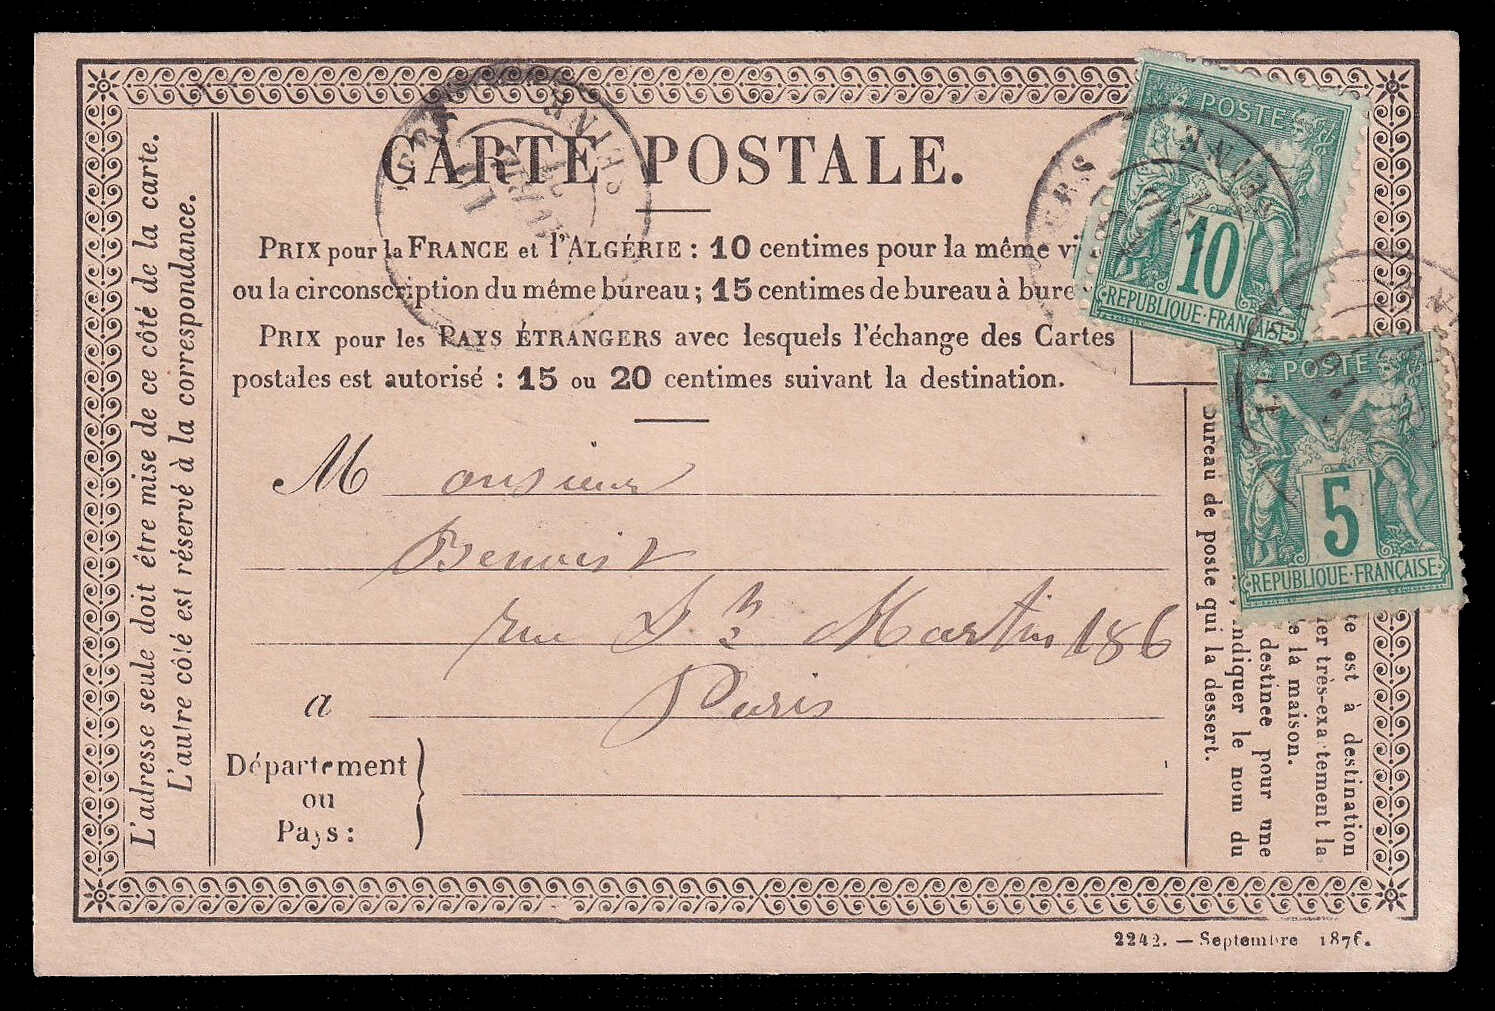 CARTE POSTALE.
PRIX pour la FRANCE et l'ALGÉRIE : 10 centimes pour la même
ou la circonscription du même bureau ; 15 centimes de bureau à
PRIX pour les PAYS ÉTRANGERS avec lesquels l'échange des Cartes
postales est autorisé : 15 ou 20 centimes suivant la destination.
Monsieur
Benoist
rue St Martin 186
a Paris
Département
ou
Pays :
L'adresse seule doit être mise de ce côté de la carte.
L'autre côté est réservé à la correspondance.
POSTE
10
REPUBLIQUE·FRANÇAISE
POSTE
5
REPUBLIQUE·FRANÇAISE
est à destination
très-exactement la
la maison.
destinée pour une
indiquer le nom du
bureau de poste qui la dessert.
2242. — Septembre 1876.